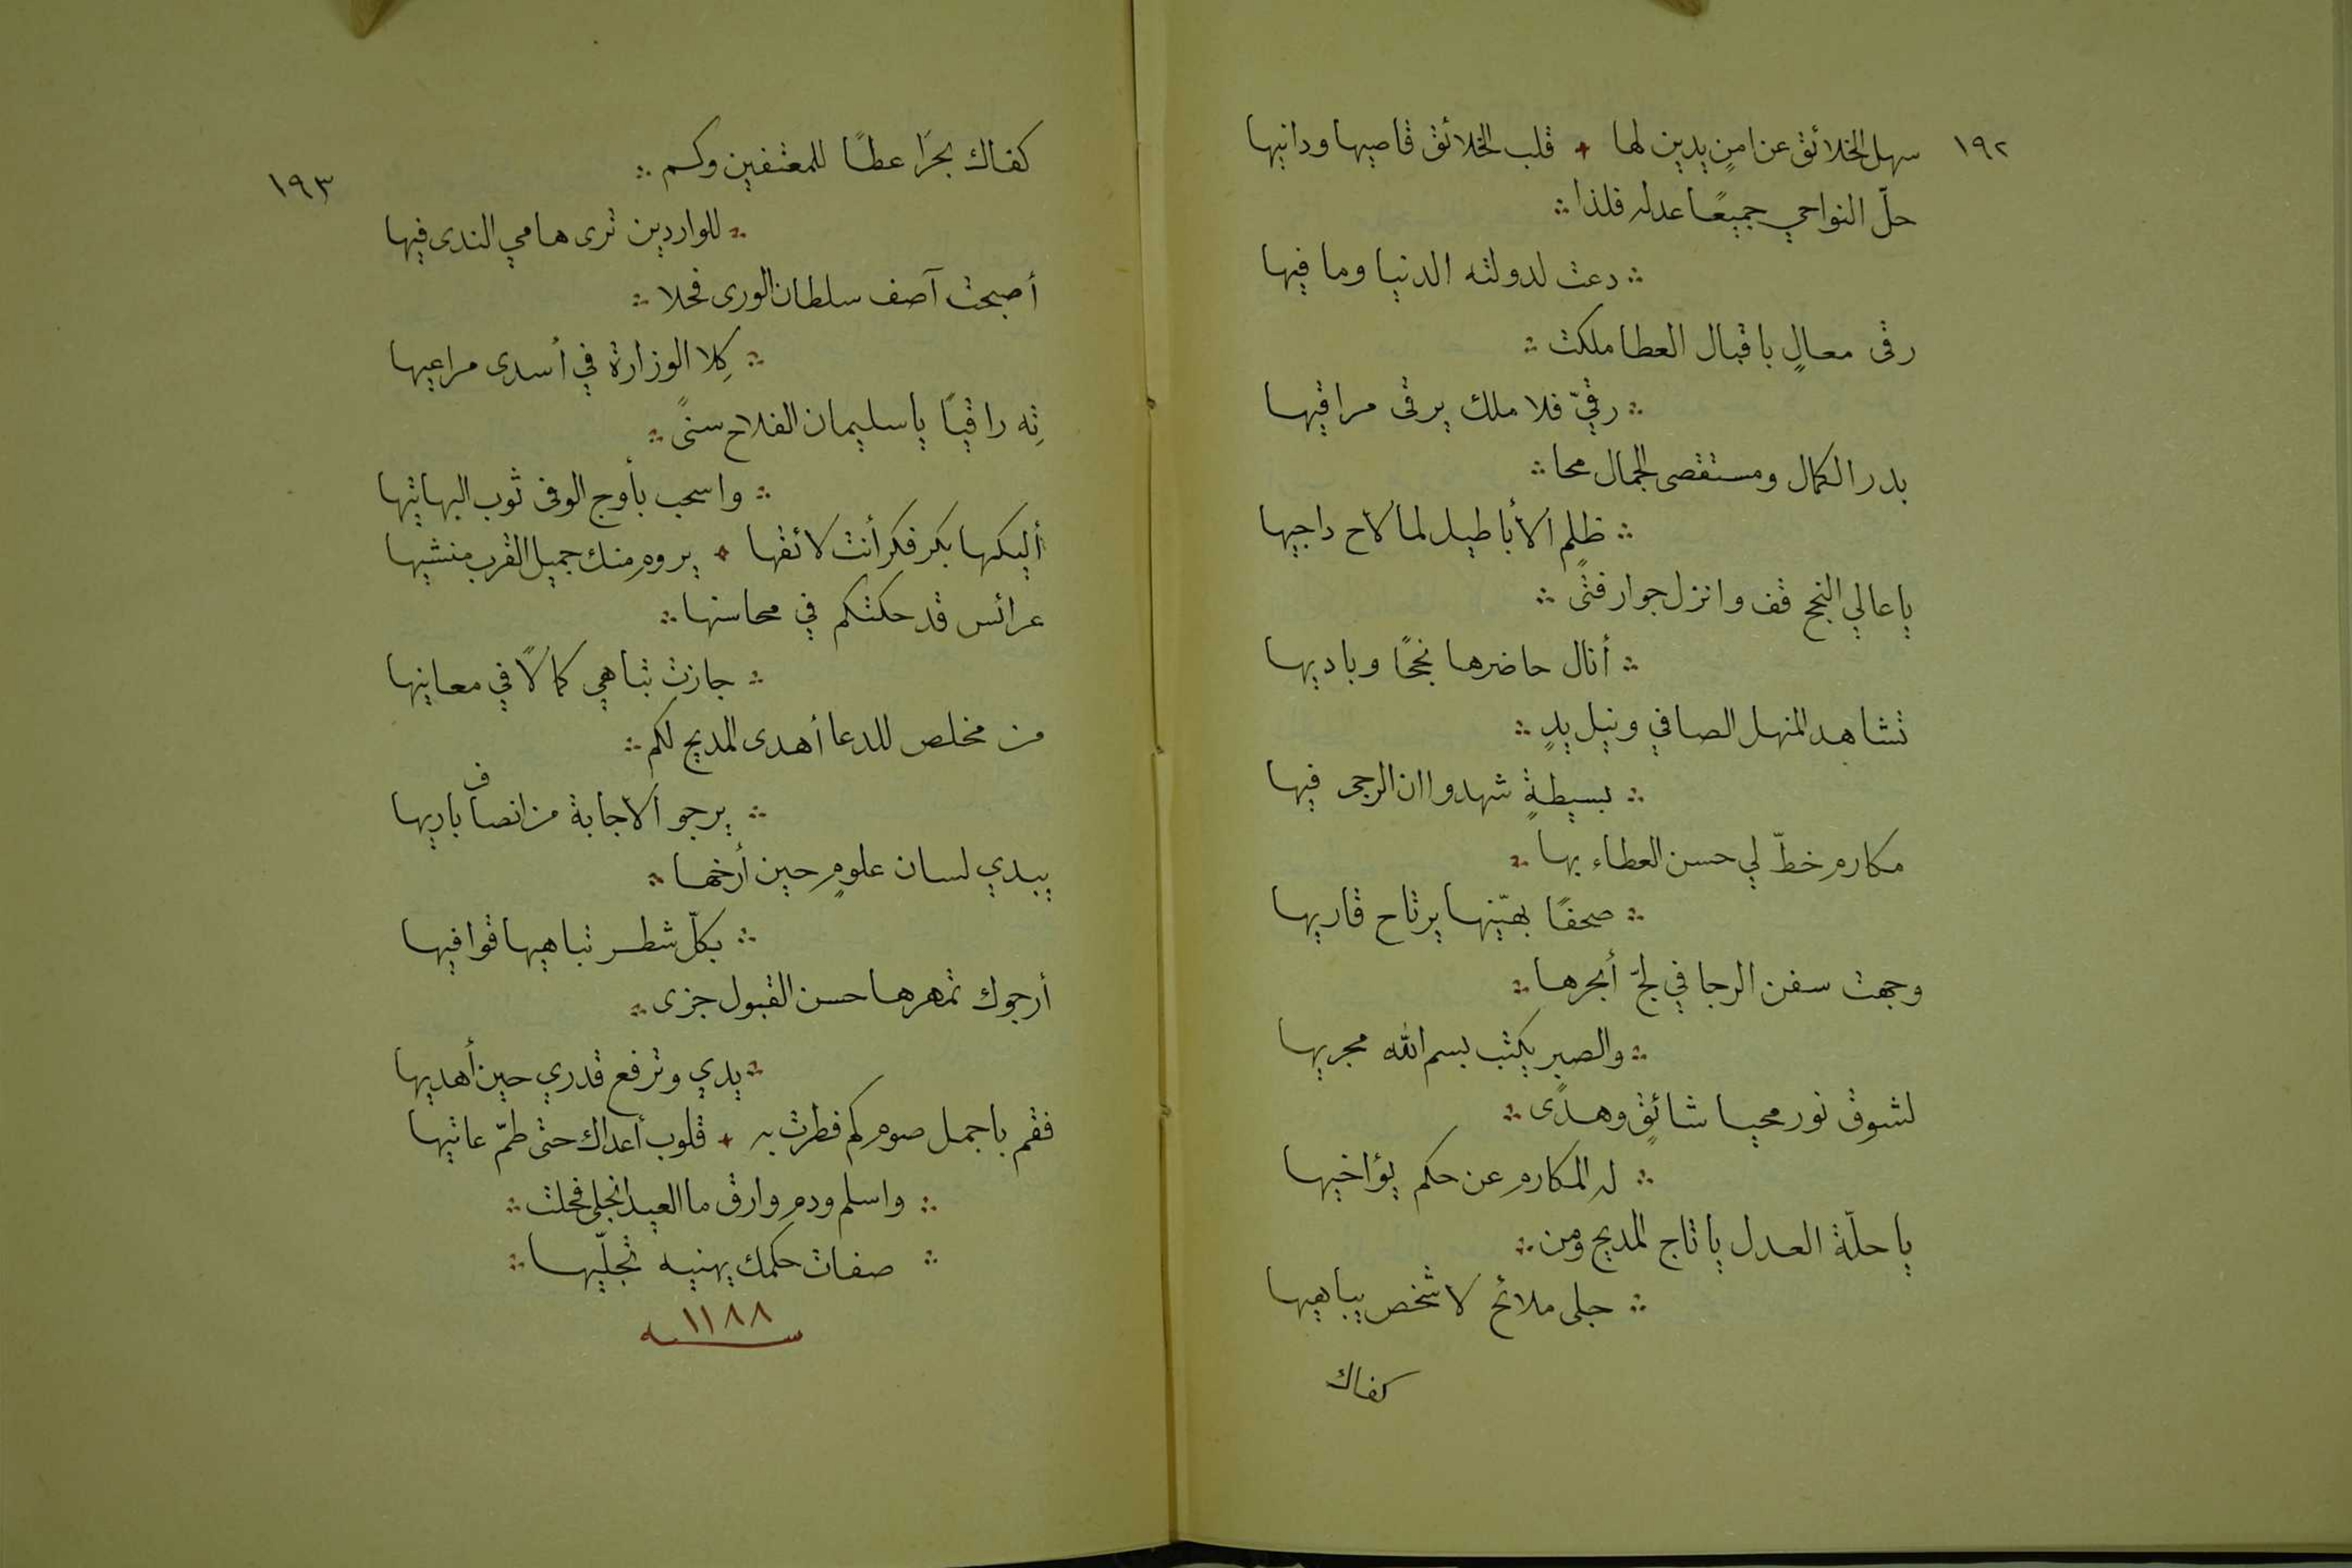 ١٩٢
سهل الخلائق عن امنٍ يدين لها ✦ قلب الخلائق قاصيها ودانيها
حلّ النواحي جميعًا عدله فلذا ∴
∴ دعت لدولته الدنيا وما فيها
رقى معالٍ باقبال العطا ملكت ∴
∴ رقيّ فلا ملك يرقى مراقيها
بدر الكمال ومستقصى الجمال محا ∴
∴ ظلم الأباطيل لما لاح داجيها
يا عالي النجح قف وانزل جوار فتًى ∴
∴ أنال حاضرها نجحًا وباديها
تشاهد المنهل الصافي ونيل يدٍ ∴
∴ بسيطةٍ شهدوا ان الرجى فيها
مكارم خطّ لي حسن العطاء بها ∴
∴ صحفًا بهيّنها يرتاح قاريها
وجهت سفن الرجا في لجّ أبحرها ∴
∴ والصبر يكتب بسم الله مجريها
لشوق نور محيا شائقٍ وهدًى ∴
∴ له المكارم عن حكم يؤاخيها
يا حلّة العدل يا تاج المديح ومن ∴
∴ جلى ملائح لا شخص يباهيها
كفاك
١٩٣
كفاك بحرًا عطًا للمعتفين وكم ∴
∴ للواردين ترى هامي الندى فيها
أصبحت آصف سلطان الورى فحلا ∴
∴ كِلا الوزارة في أسدى مراعيها
تِه راقيًا يا سليمان الفلاح سنًى ∴
∴ واسحب بأوج الوفى ثوب البهاتيها
أليكها بكر فكر أنت لائقها ✦ يروم منك جميل القرب منشيها
عرائس قد حكتكم في محاسنها ∴
∴ جازت تباهي كمالًا في معانيها
من مخلص للدعا أهدى المديح لكم ∴
∴ يرجو الاجابة من انصاف باريها
يبدي لسان علومٍ حين أرخها ∴
∴ بكلّ شطر تباهيها قوافيها
أرجوك تمهرها حسن القبول جزى ∴
∴ يدي وترفع قدري حين أهديها
فقم باجمل صوم كم فطرت به ✦ قلوب أعداك حتى طمّ عاتيها
∴ واسلم ودم وارق ما العيد انجلى فحلت ∴
∴ صفات حكمك يهنيه تجلّيها ∴
سنه ١١٨٨